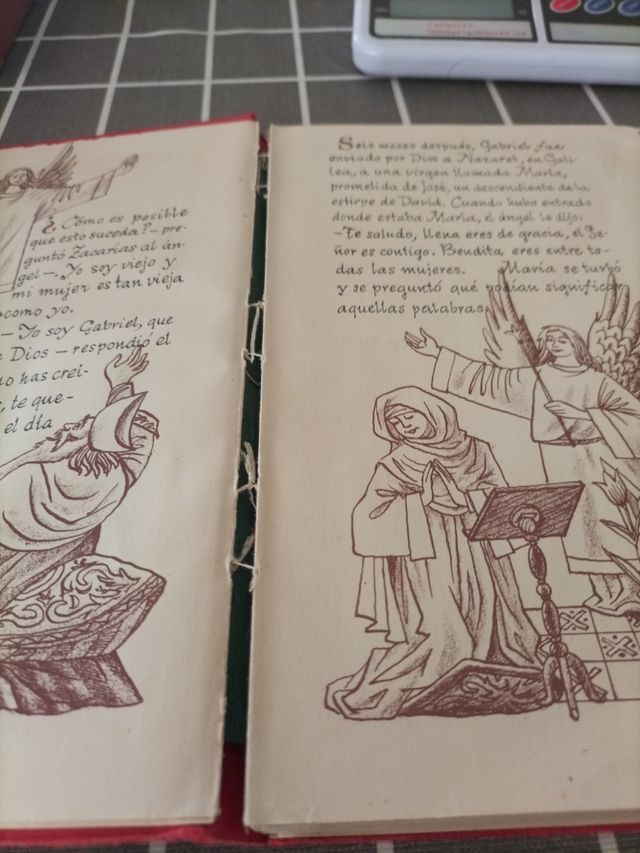 ¿Cómo es posible
que esto suceda?— pre-
guntó Zacarías al án-
gel—. Yo soy viejo y
mi mujer es tan vieja
como yo.
— Yo soy Gabriel, que
Dios — respondió el
has creí-
te que-
el día
Seis meses después, Gabriel fue
enviado por Dios a Nazaret, en Gali-
lea, a una virgen llamada María,
prometida de José, un descendiente de la
estirpe de David. Cuando hubo entrado
donde estaba María, el ángel le dijo:
—Te saludo, llena eres de gracia, el Se-
ñor es contigo. Bendita eres entre to-
das las mujeres. María se turbó
y se preguntó qué podían significar
aquellas palabras.
CAPACITY: